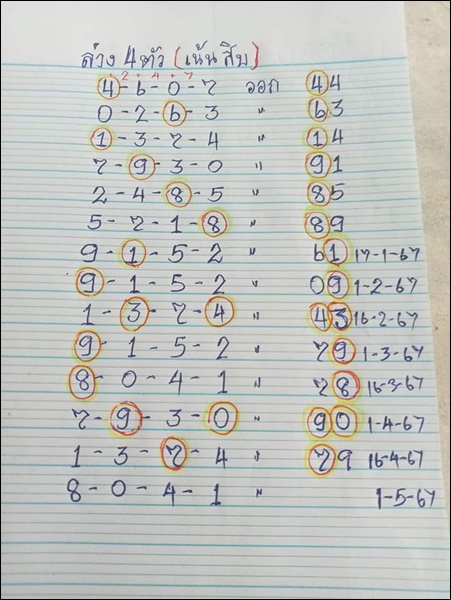 ล่าง 4 ตัว (เน้น สิบ)
+2 +4 +7
4-6-0-7 ออก 44
0-2-6-3 " 63
1-3-7-4 " 14
7-9-3-0 " 91
2-4-8-5 " 85
5-7-1-8 " 89
9-1-5-2 " 61 17-1-67
9-1-5-2 " 09 1-2-67
1-3-7-4 " 43 16-2-67
9-1-5-2 " 79 1-3-67
8-0-4-1 " 78 16-3-67
7-9-3-0 " 90 1-4-67
1-3-7-4 " 79 16-4-67
8-0-4-1 " 1-5-67